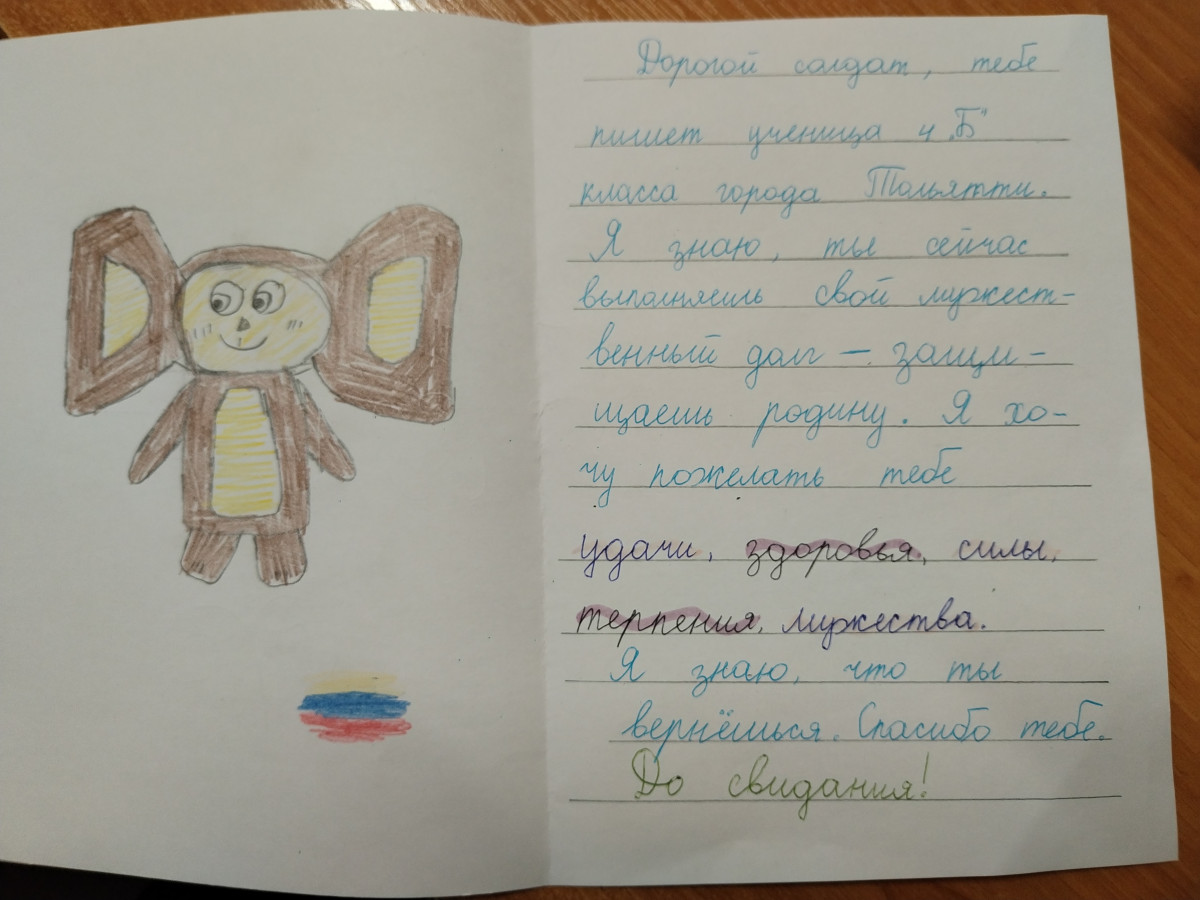 Дорогой солдат, тебе
пишет ученица 4 „Б"
класса города Тольятти.
Я знаю, ты сейчас
выполняешь свой мужест-
венный долг — защи-
щаешь родину. Я хо-
чу пожелать тебе
удачи, здоровья, силы,
терпения, мужества.
Я знаю, что ты
вернёшься. Спасибо тебе.
До свидания!